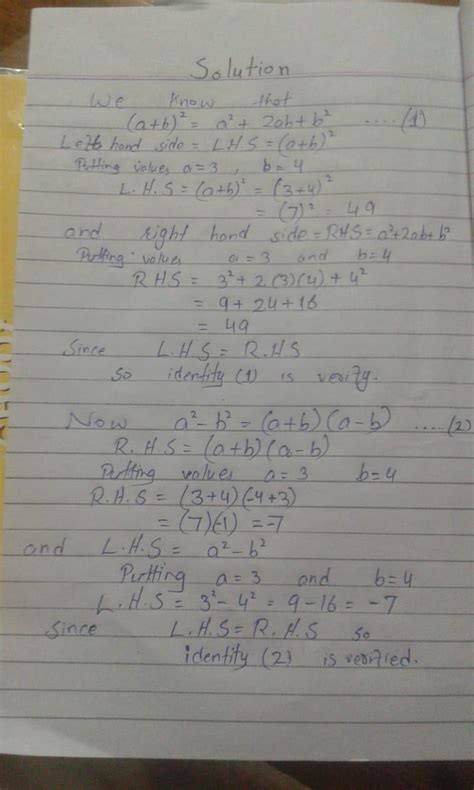 Solution
We know that
(a+b)² = a² + 2ab + b² ....(1)
Left hand side = L.H.S = (a+b)²
Putting values a=3 , b=4
L.H.S = (a+b)² = (3+4)²
= (7)² = 49
and right hand side = RHS = a²+2ab+b²
Putting values a=3 and b=4
RHS = 3² + 2(3)(4) + 4²
= 9+24+16
= 49
Since L.H.S = R.HS
so identity (1) is verify.
Now a²-b² = (a+b)(a-b) ....(2)
R.H.S = (a+b)(a-b)
Putting values a=3 b=4
R.H.S = (3+4)(-4+3)
= (7)(-1) = -7
and L.H.S = a²-b²
Putting a=3 and b=4
L.H.S = 3²-4² = 9-16 = -7
Since L.H.S = R.H.S so
identity (2) is verified.